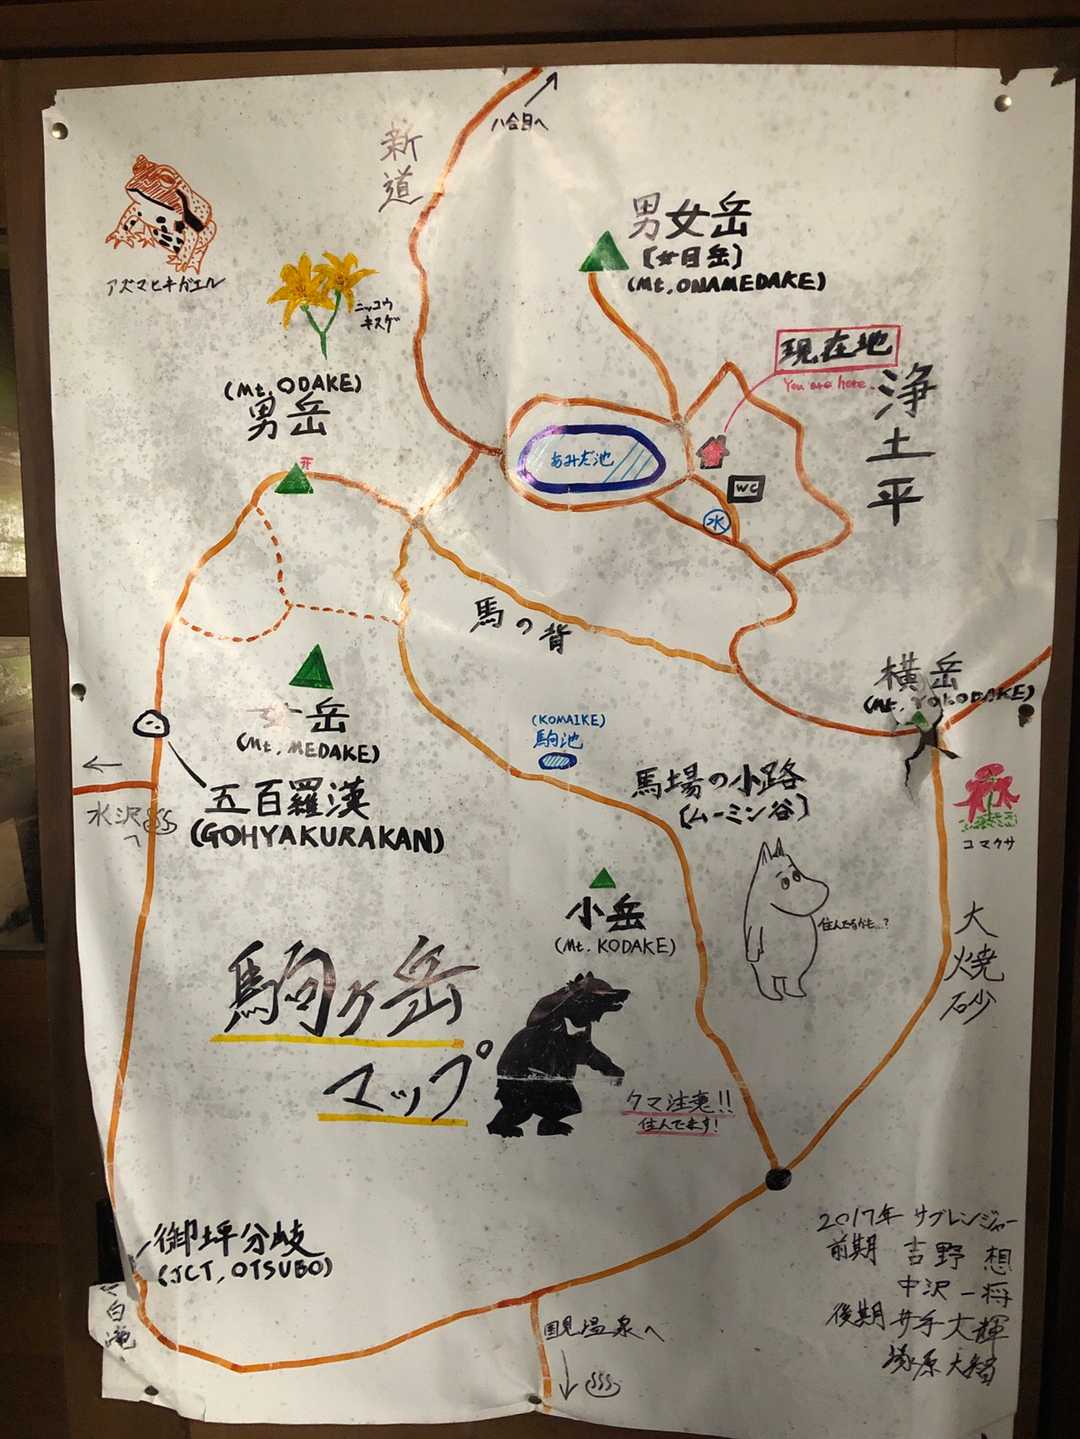 八合目へ
新道
アズマヒキガエル
ニッコウ
キスゲ
男女岳
[女目岳]
(Mt, ONAMEDAKE)
現在地
You are here.
浄土平
(Mt, ODAKE)
男岳
あみだ池
WC
水
馬の背
岳
(Mt, MEDAKE)
(KOMAIKE)
駒池
横岳
(Mt, YOKODAKE)
五百羅漢
(GOHYAKURAKAN)
水沢
へ
馬場の小路
[ムーミン谷]
住んでるかも…?
コマクサ
小岳
(Mt. KODAKE)
大焼砂
駒ヶ岳
マップ
クマ注意!!
住んでます!
御坪分岐
(JCT, OTSUBO)
白滝
国見温泉へ
2017年 サブレンジャー
前期 吉野 想
中沢 一将
後期 井手 大輝
塚原 大